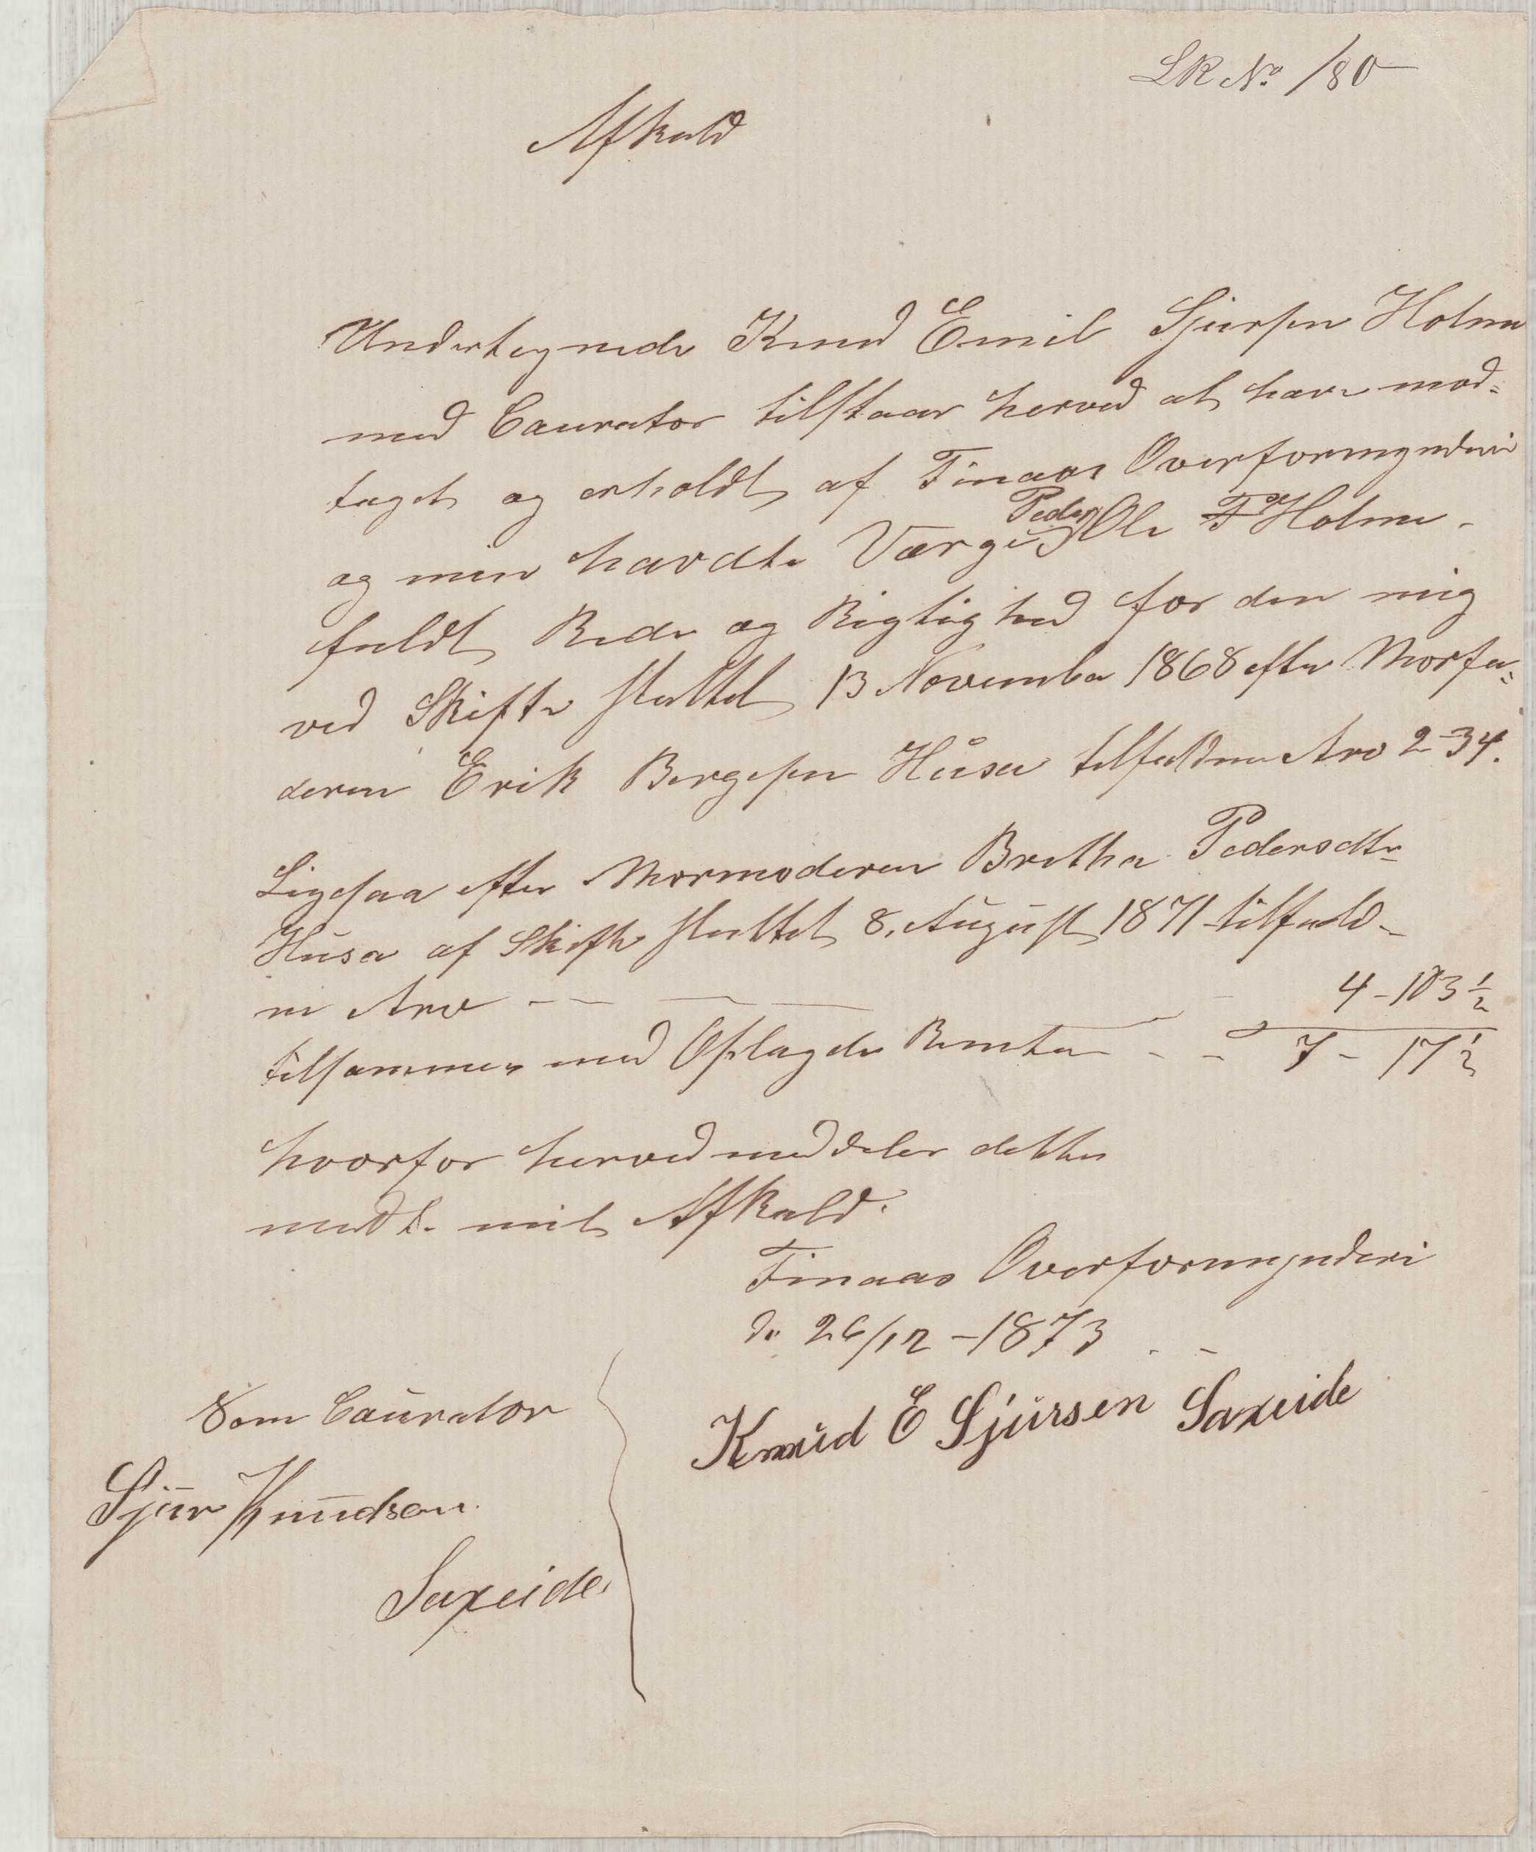 LR No 180
Afkald
Undertegnede Knud Emil Sjursen Holme
med Caurator tilstaar herved at have mod-
taget og erholdt af Finaas Overformynderi
og min havdte Værge Peder Ole F Holme
fuldt Rede og Rigtighed for den mig
ved Skifte sluttet 13 November 1868 efter Morfa-
deren Erik Bergesen Husa tilfaldne Arv 2-34.
Ligesaa efter Mormoderen Brithe Pedersdtr
Husa af Skifte sluttet 8. August 1871 tilfald-
ne Arv 4-103 1/2
tilsammen med Oplagde Renter 7-17 1/2
hvorfor herved meddeles dette
mit Afkald.
Finaas Overformynderi
d. 26/12-1873
Knud E Sjursen Saxeide
Som Caurator
Sjur Knudsen
Saxeide